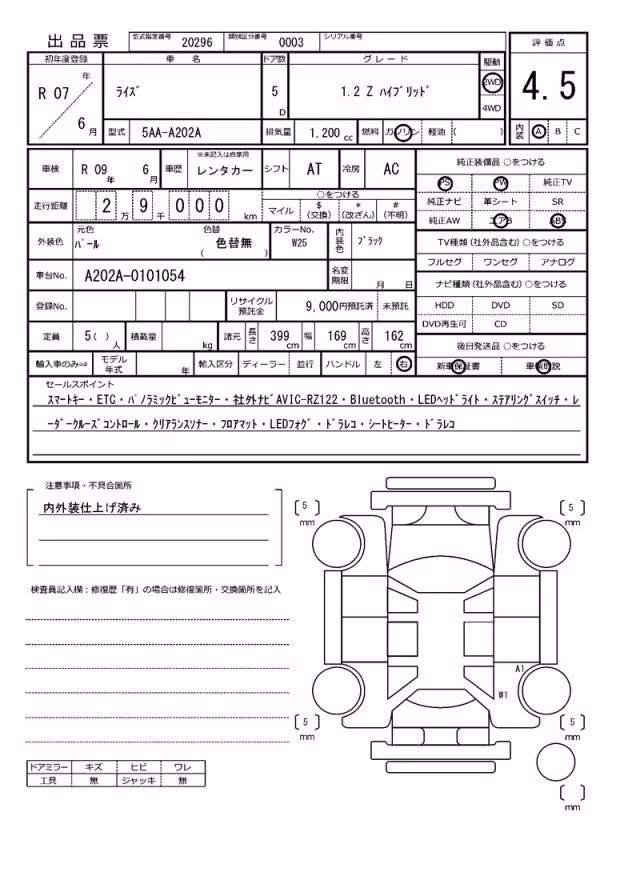 出品票 型式指定番号 20296 類別区分番号 0003 シリアル番号
評価点
4.5
内装 A B C
初年度登録 車名 ドア数 グレード 駆動
R 07 年 6 月 ﾗｲｽﾞ 5 D 1.2 Z ﾊｲﾌﾞﾘｯﾄﾞ 2WD 4WD
型式 5AA-A202A 排気量 1.200 cc 燃料 ガソリン 軽油 ( )
車検 R 09 年 6 月 車歴 ※未記入は自家用 レンタカー シフト AT 冷房 AC
走行距離 2 万 9 千 0 0 0 km
○をつける
マイル $ (交換) * (改ざん) # (不明)
外装色 元色 ﾊﾟｰﾙ 色替 ( 色替無 ) カラーNo. W25 内装色 ﾌﾞﾗｯｸ
車台No. A202A-0101054 名変期限 月 日
登録No. リサイクル預託金 9,000円預託済 未預託
定員 5 ( ) 人 積載量 kg 諸元 長さ 399 cm 幅 169 cm 高さ 162 cm
輸入車のみ⇒ モデル年式 年 輸入区分 ディーラー 並行 ハンドル 左 右
純正装備品 ○をつける
PS PW 純正TV
純正ナビ 革シート SR
純正AW エアB ABS
TV種類 (社外品含む) ○をつける
フルセグ ワンセグ アナログ
ナビ種類 (社外品含む) ○をつける
HDD DVD SD
DVD再生可 CD
後日発送品 ○をつける
新車保証書 車輌取説
セールスポイント
ｽﾏｰﾄｷｰ・ETC・ﾊﾟﾉﾗﾐｯｸﾋﾞｭｰﾓﾆﾀｰ・社外ﾅﾋﾞAVIC-RZ122・Bluetooth・LEDﾍｯﾄﾞﾗｲﾄ・ｽﾃｱﾘﾝｸﾞｽｲｯﾁ・ﾚ
ｰﾀﾞｰｸﾙｰｽﾞｺﾝﾄﾛｰﾙ・ｸﾘｱﾗﾝｽｿﾅｰ・ﾌﾛｱﾏｯﾄ・LEDﾌｫｸﾞ・ﾄﾞﾗﾚｺ・ｼｰﾄﾋｰﾀｰ・ﾄﾞﾗﾚｺ
注意事項・不具合箇所
内外装仕上げ済み
検査員記入欄：修復歴「有」の場合は修復箇所・交換箇所を記入
ドアミラー キズ ヒビ ワレ
工具 無 ジャッキ 無
[ 5 ] mm [ 5 ] mm
A1
W1
[ 5 ] mm [ 5 ] mm
[ ] mm